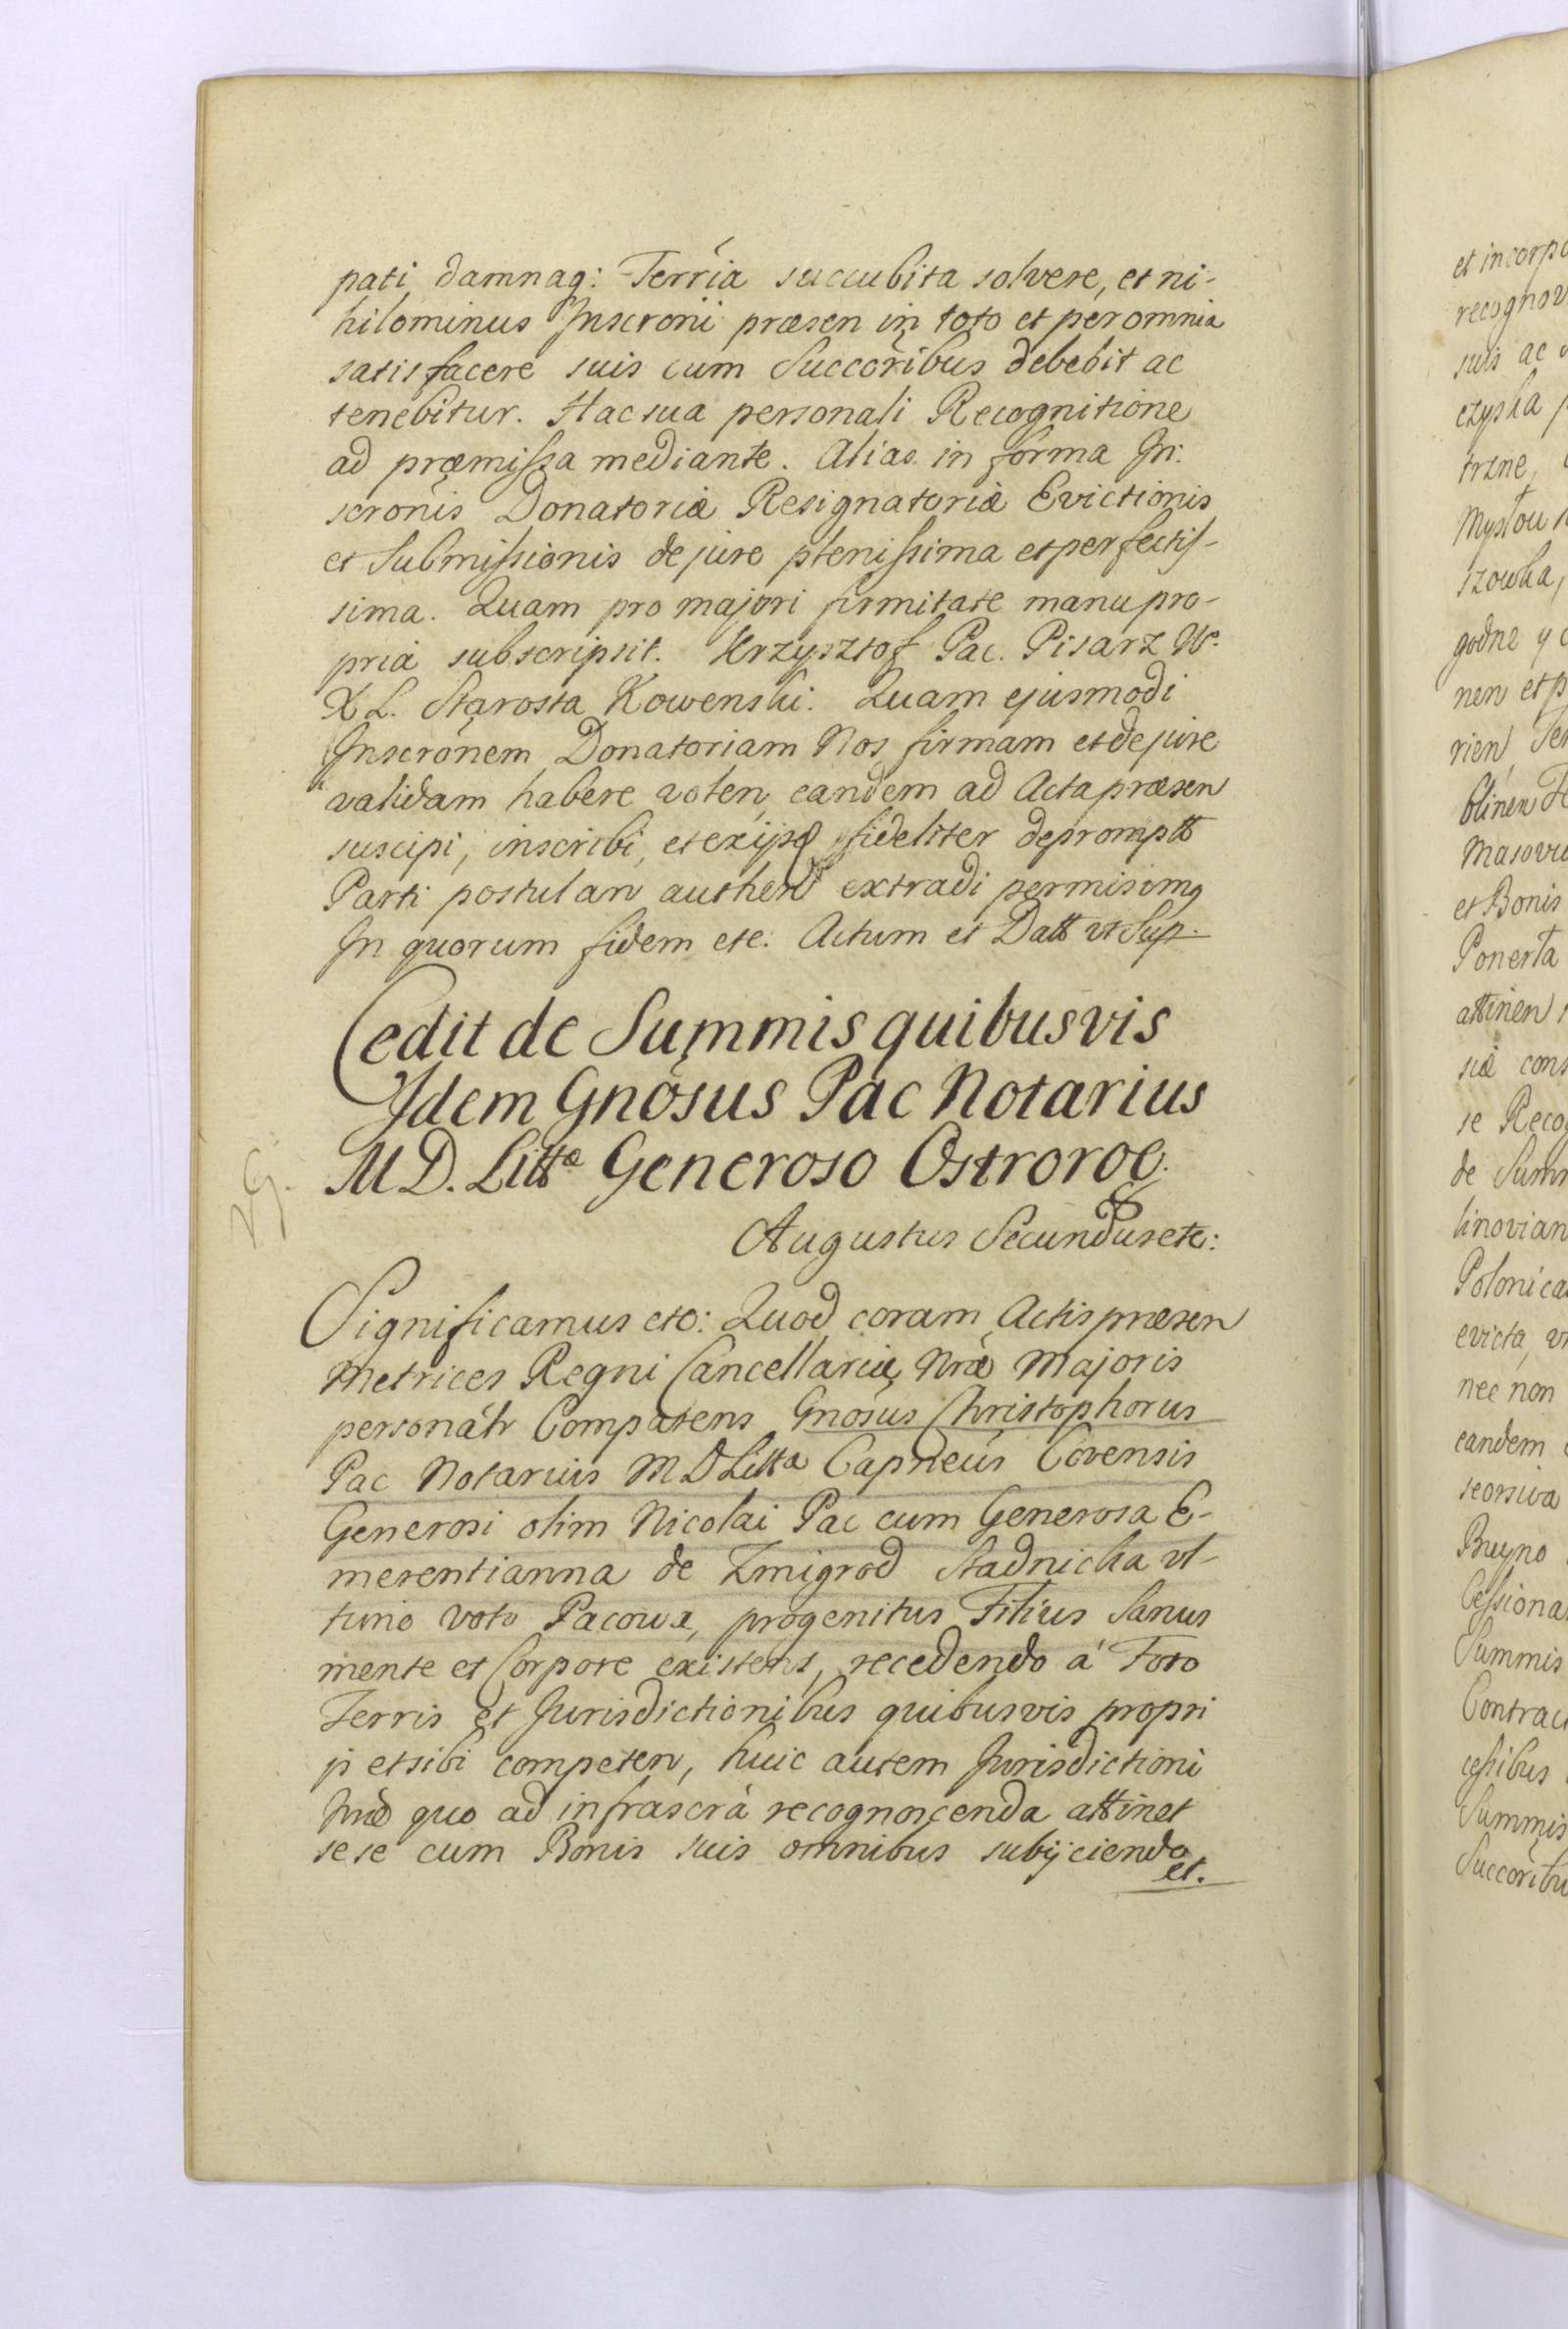 pati damnaq: Terria succubita solvere, et ni-
hilominus Inscronii præsen in toto et per omnia
satisfacere suis cum Succoribus debebit ac
tenebitur. Hac sua personali Recognitione
ad præmissa mediante. Alias in forma In:
scronis Donatoriæ Resignatoriæ Evictionis
et Submissionis de jure plenissima et perfectis-
sima. Quam pro majori firmitate manu pro-
pria subscripsit. Krzysztof Pac. Pisarz W.
X L. Starosta Kowenski. Quam ejusmodi
Inscronem Donatoriam Nos firmam et de jure
validam habere volen, eandem ad Acta præsen
suscipi, inscribi, et ex ijsd fideliter deprompt
Parti postulan authen extradi permisimq
In quorum fidem etc: Actum et Datt ut Sup.
Cedit de Summis quibusvis
Idem Gnosus Pac Notarius
M D. Litt^æ Generoso Ostrorog.
Augustus Secundus etc:
Significamus etc: Quod coram Actis præsen
Metrices Regni Cancellariæ Nræ Majoris
personalr Comparens Gnosus Christophorus
Pac Notarius M D Litt^æ Capneus Covensis
Generosi olim Nicolai Pac cum Generosa E-
merentianna de Zmigrod Stadnicka ul-
timo voto Pacowa, progenitus Filius Sanus
mente et Corpore existens, recedendo á Foro
Terris et Jurisdictionibus quibusvis propri
js et sibi competen, huic autem Jurisdictioni
quo ad infrascra recognoscenda attinet
sese cum Bonis suis omnibus subijciendo
et.
et incorpo
recognov
suis ac
czyska
trzne,
Mystou
szowka,
godne y c
nen et p
rien, Ter
blinen Te
Masovi
et Bonis
Ponerta
attinen
siæ cons
se Recog
de Summ
linovian
Polonica
evicta, v
nec non
eandem
seorsiva
Buyno
Cessiona
Summis
Contrac
cessibus
Summis
Succoribu